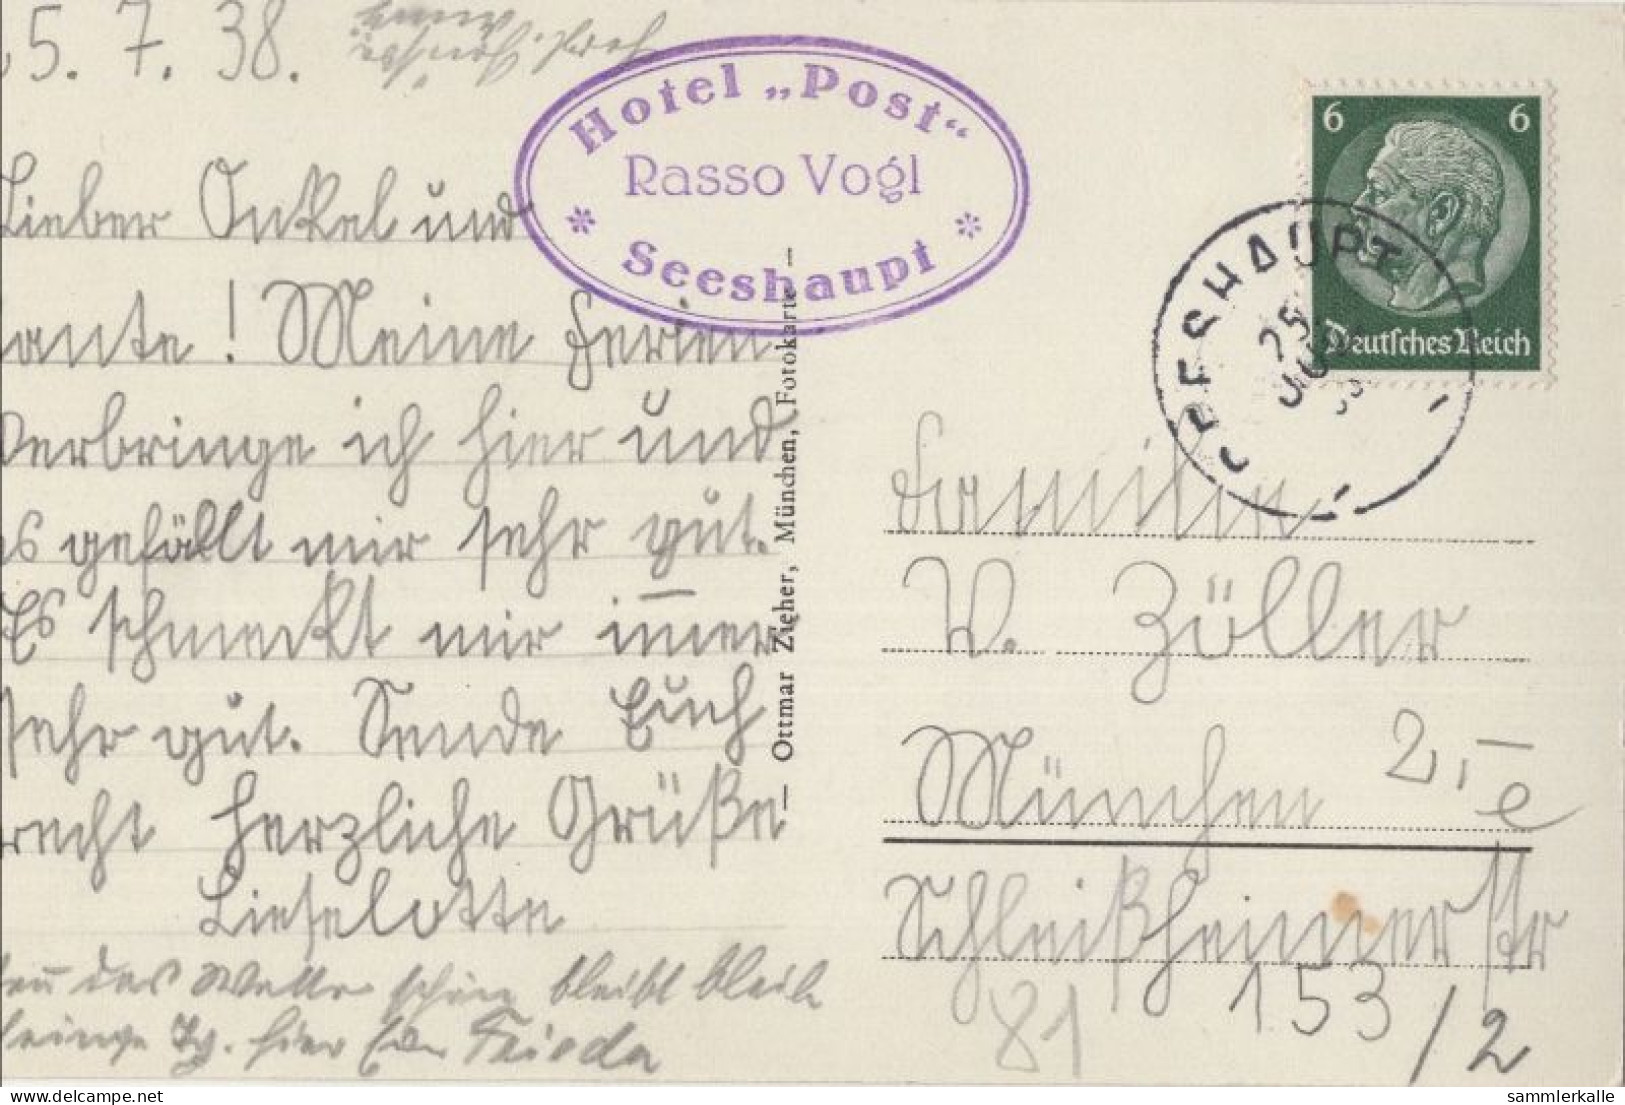 25. 7. 38.
Lieber Onkel und
Tante! Meine Ferien
verbringe ich hier und
es gefällt mir sehr gut.
Es schmeckt mir im̅er
sehr gut. Sende Euch
recht herzliche Grüße
Lieselotte
das Wetter schön bleibt bleibe
einige Tg. hier Frieda
Hotel „Post“
Rasso Vogl
* Seeshaupt *
— Ottmar Zieher, München, Fotokarte —
6 6
Deutsches Reich
SEESHAUPT
25
Familie
W. Zöller
München
2,-
e
Schleißheimerstr
153/2
81
delcampe.net
sammlerkalle